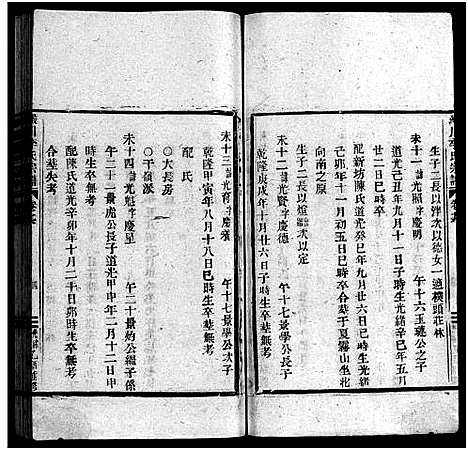 生子二長以泮次以德女一適橫頭莊林
未十一諱光照字慶明 午十六玉蘊公之子
道光己丑年九月十一日子時生光緒子巳年五月
配新坊陳氏道光癸巳年九月廿六日巳時生光緒
己卯年十一月初五日巳時卒合葬于夏霧山坐北
向南之原
生子二長以煊次以定
未十二諱光賢字慶德 午十七景學公長子
乾隆庚戌年十月廿六日子時生卒葬無考
未十三諱光育字慶養 午十七景學公次子
乾隆甲寅年八月十八日巳時生卒葬無考
配氏
〇大長房
〇干嶺派
未十四諱光魁字慶星 午二十景灼公繼子係
午二十一景虎公長子道光甲申年二月十二日申
時生卒葬無考
配陳氏道光辛卯年十月二十日卯時生卒
合葬失考